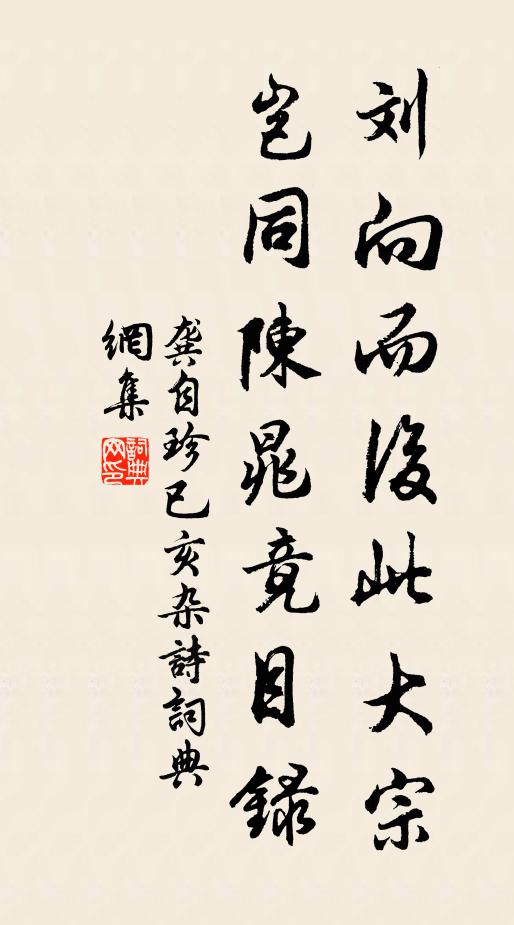 刘向而後此大宗
岂同陳晁竟目録
龔自珍己亥杂詩詞典
網集
詞典网印